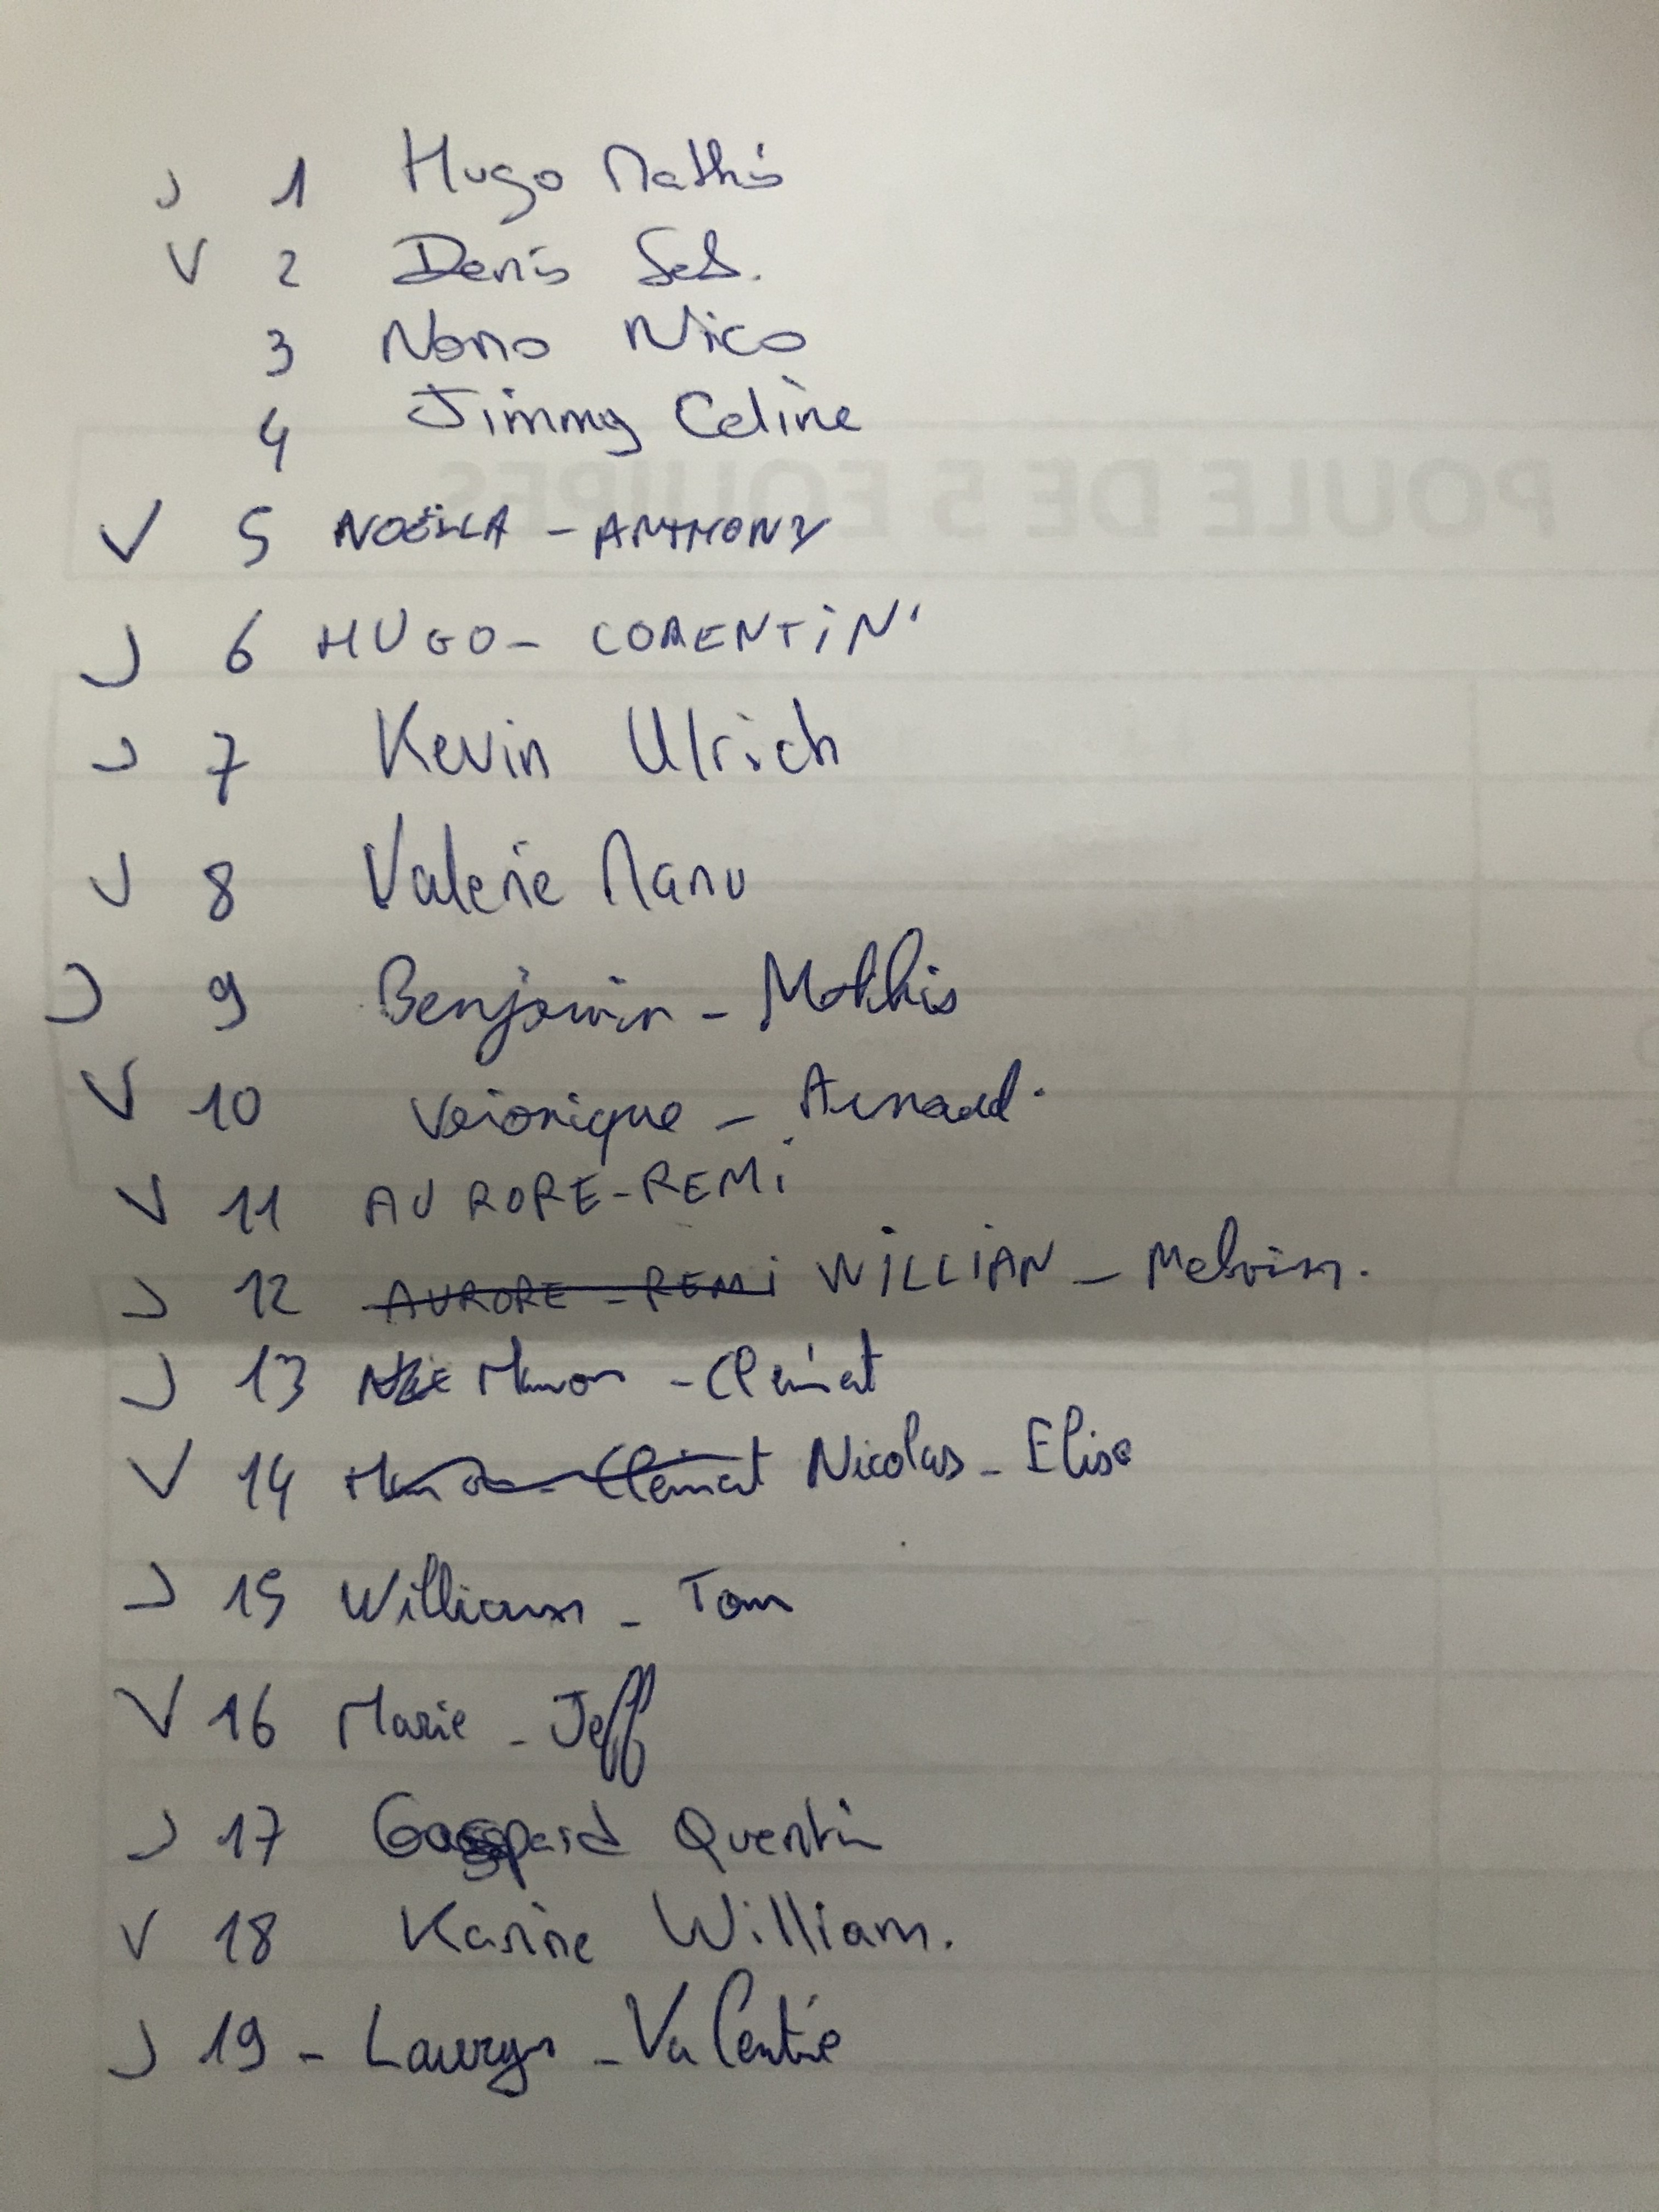 J 1 Hugo Mathis
V 2 Denis Seb.
3 Nono Nico
4 Jimmy Celine
POULE DE 5 EQUIPES
V 5 NOËLLA - ANTHONY
J 6 HUGO - CORENTIN
J 7 Kevin Ulrich
V 8 Valerie Manu
J 9 Benjamin - Mathis
V 10 Veronique - Arnaud.
V 11 AURORE - REMI
J 12 AURORE - REMI WILLIAN - Melvin.
J 13 Manon - Clément
V 14 Manon - Clément Nicolas - Elise
J 15 William - Tom
V 16 Marie - Jeff
J 17 Gaspard Quentin
V 18 Karine William.
J 19 - Laurys - Valentin